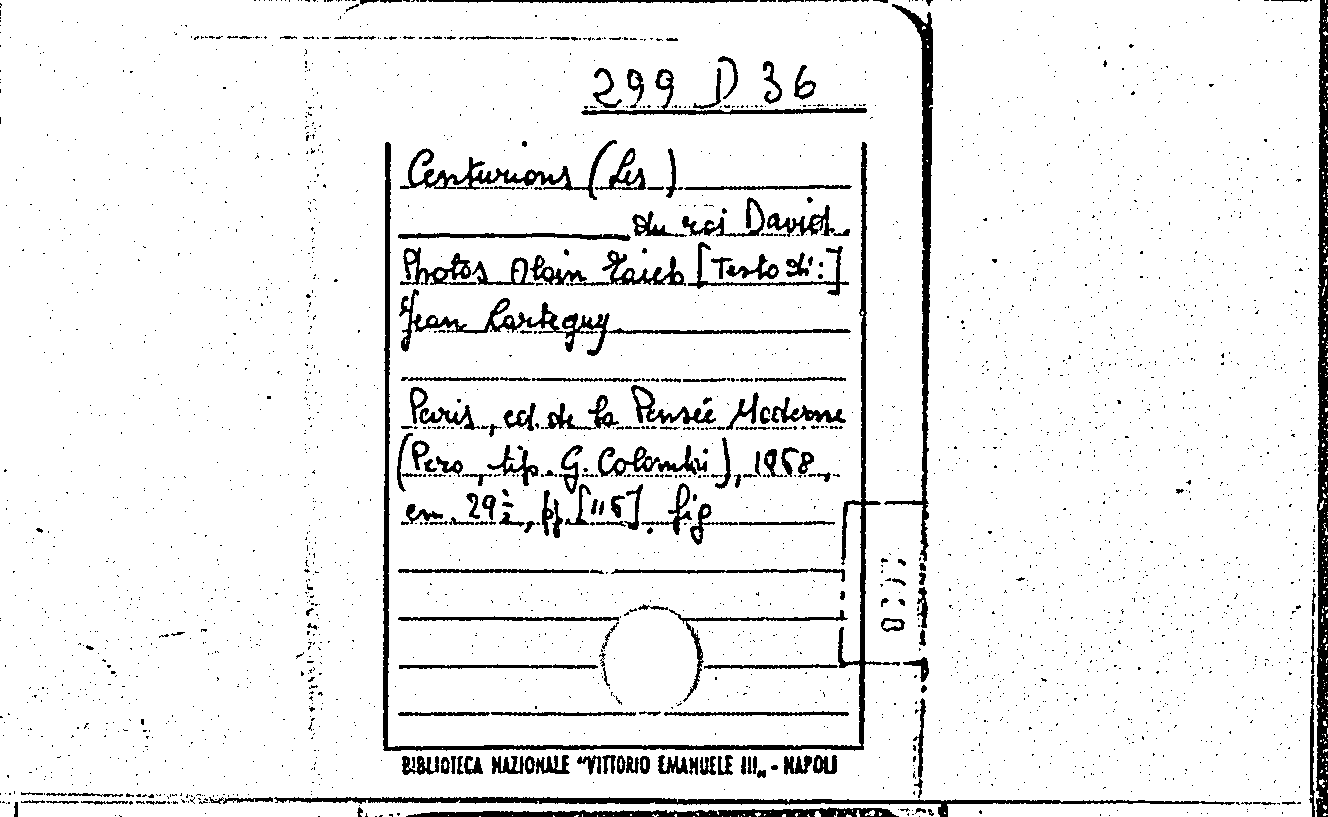 299 D 36
Centurions (Les)
du roi David.
Photos Alain Taieb [Testo di:]
Jean Larteguy
Paris, ed. de la Pensée Moderne
(Pero, tip. G. Colombi), 1968,
cm. 29½, pp. [116]. fig
BIBLIOTECA NAZIONALE "VITTORIO EMANUELE III„ - NAPOLI